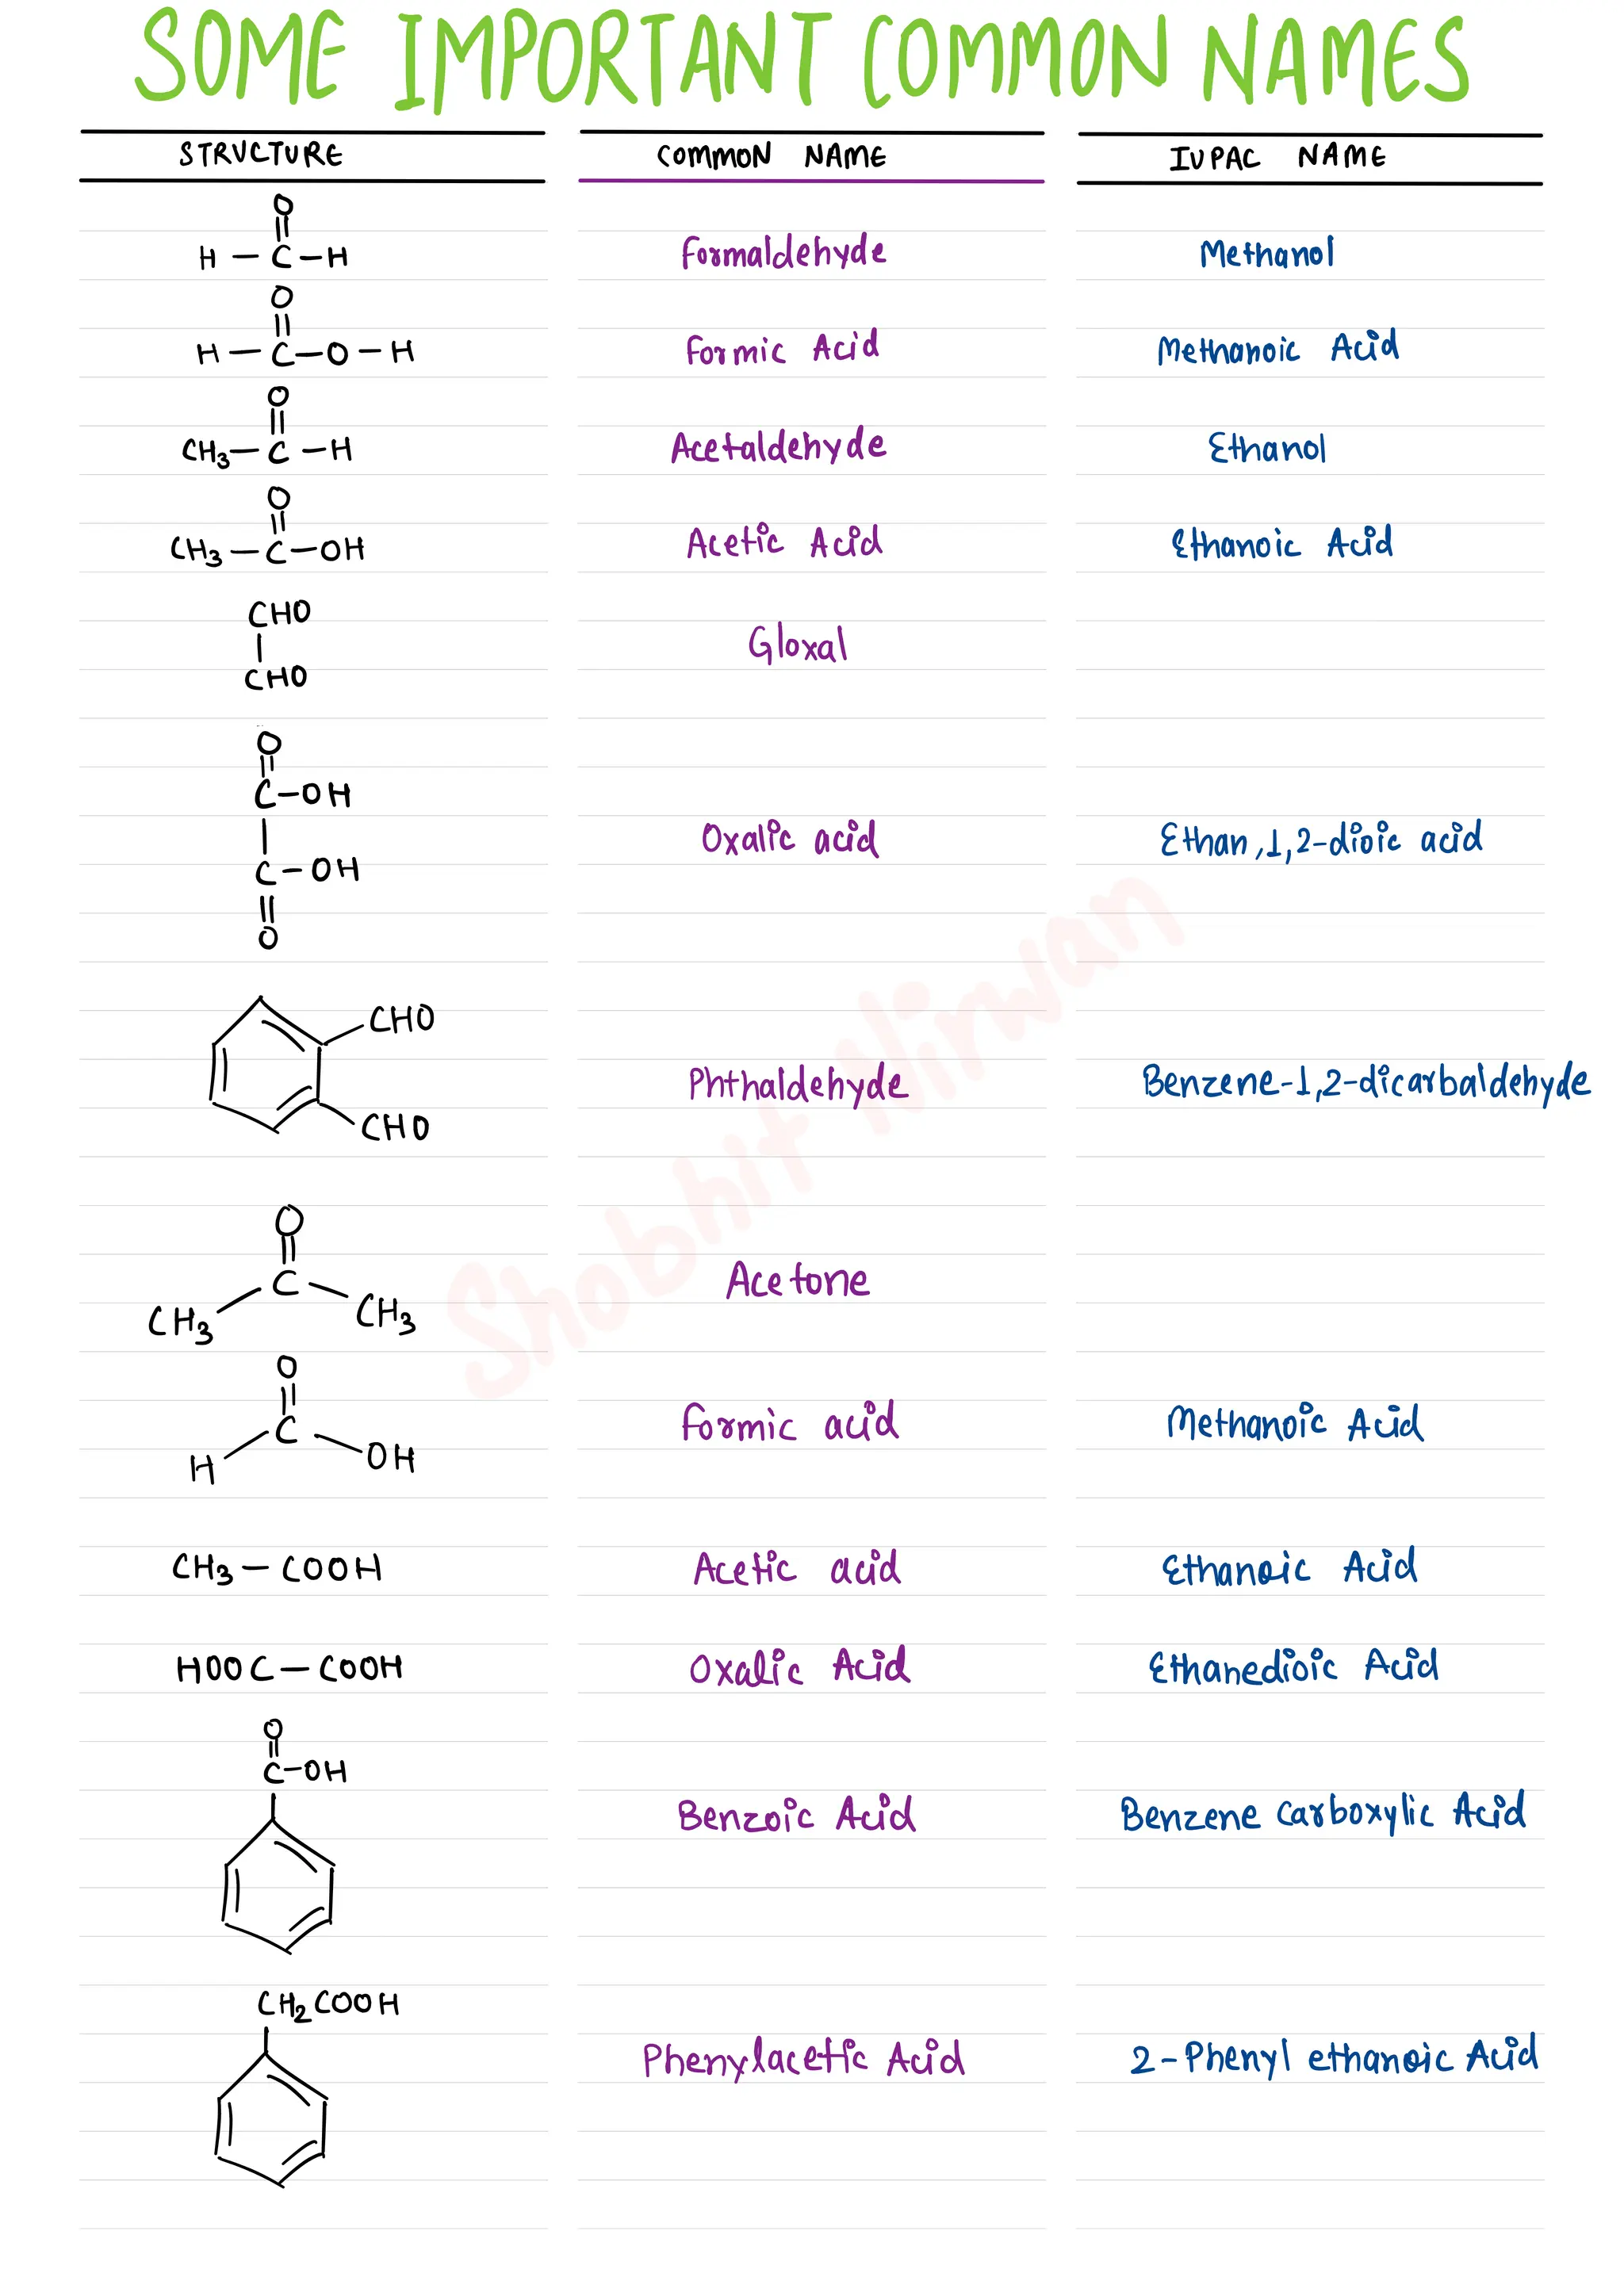 SOME IMPORTANT COMMON NAMES
STRUCTURE COMMON NAME IUPAC NAME
O
H – C – H Formaldehyde Methanol
O
H – C – O – H Formic Acid Methanoic Acid
O
CH3 – C – H Acetaldehyde Ethanol
O
CH3 – C – OH Acetic Acid Ethanoic Acid
CHO
Gloxal
CHO
O
C – OH
Oxalic acid Ethan,1,2-dioic acid
C – OH
O
CHO
Phthaldehyde Benzene-1,2-dicarbaldehyde
CHO
O
C Acetone
CH3 CH3
O
C Formic acid Methanoic Acid
H OH
CH3 – COOH Acetic acid Ethanoic Acid
HOOC – COOH Oxalic Acid Ethanedioic Acid
O
C – OH
Benzoic Acid Benzene Carboxylic Acid
CH2COOH
Phenylacetic Acid 2-Phenyl ethanoic Acid
Shobhit Nirwan